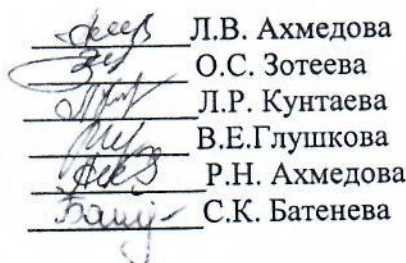 Л.В. Ахмедова
О.С. Зотеева
Л.Р. Кунтаева
В.Е.Глушкова
Р.Н. Ахмедова
С.К. Батенева